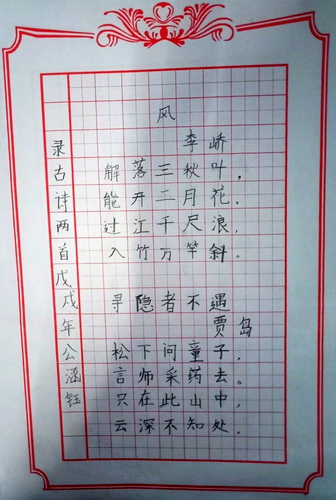 风
李峤
解落三秋叶，
能开二月花。
过江千尺浪，
入竹万竿斜。
寻隐者不遇
贾岛
松下问童子，
言师采药去。
只在此山中，
云深不知处。
录古诗两首戊戌年公涵钰